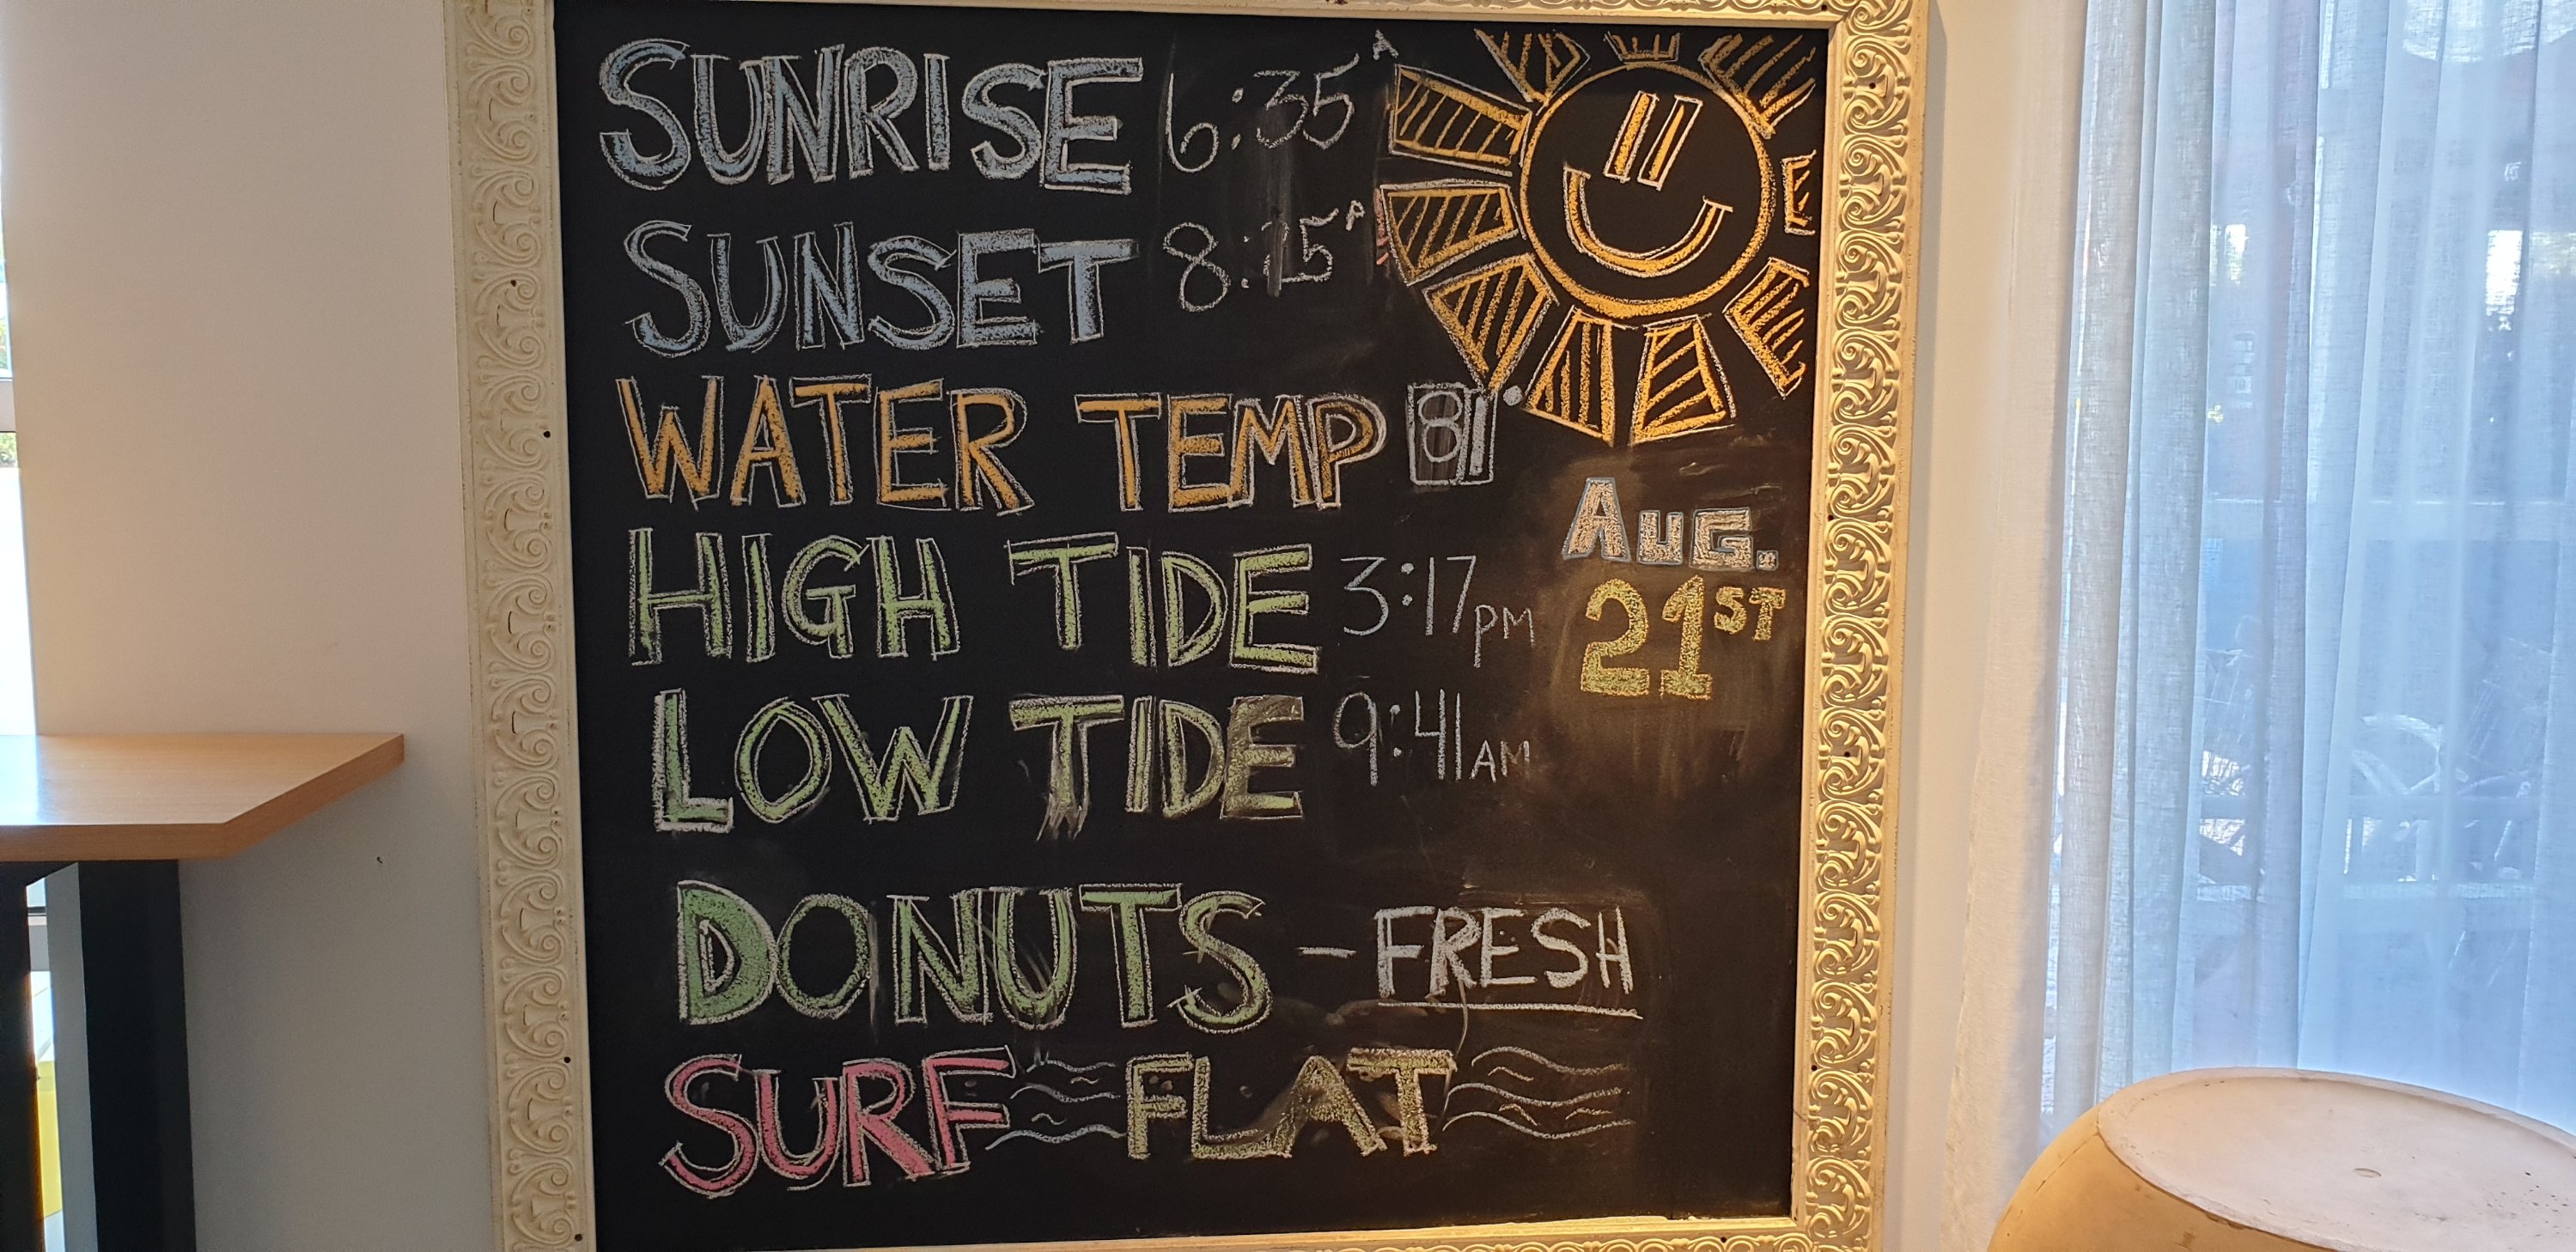 SUNRISE 6:35 A
SUNSET P
WATER TEMP 81°
HIGH TIDE 3:17 PM
LOW TIDE 9:41 AM
AUG.
21ST
DONUTS - FRESH
SURF FLAT